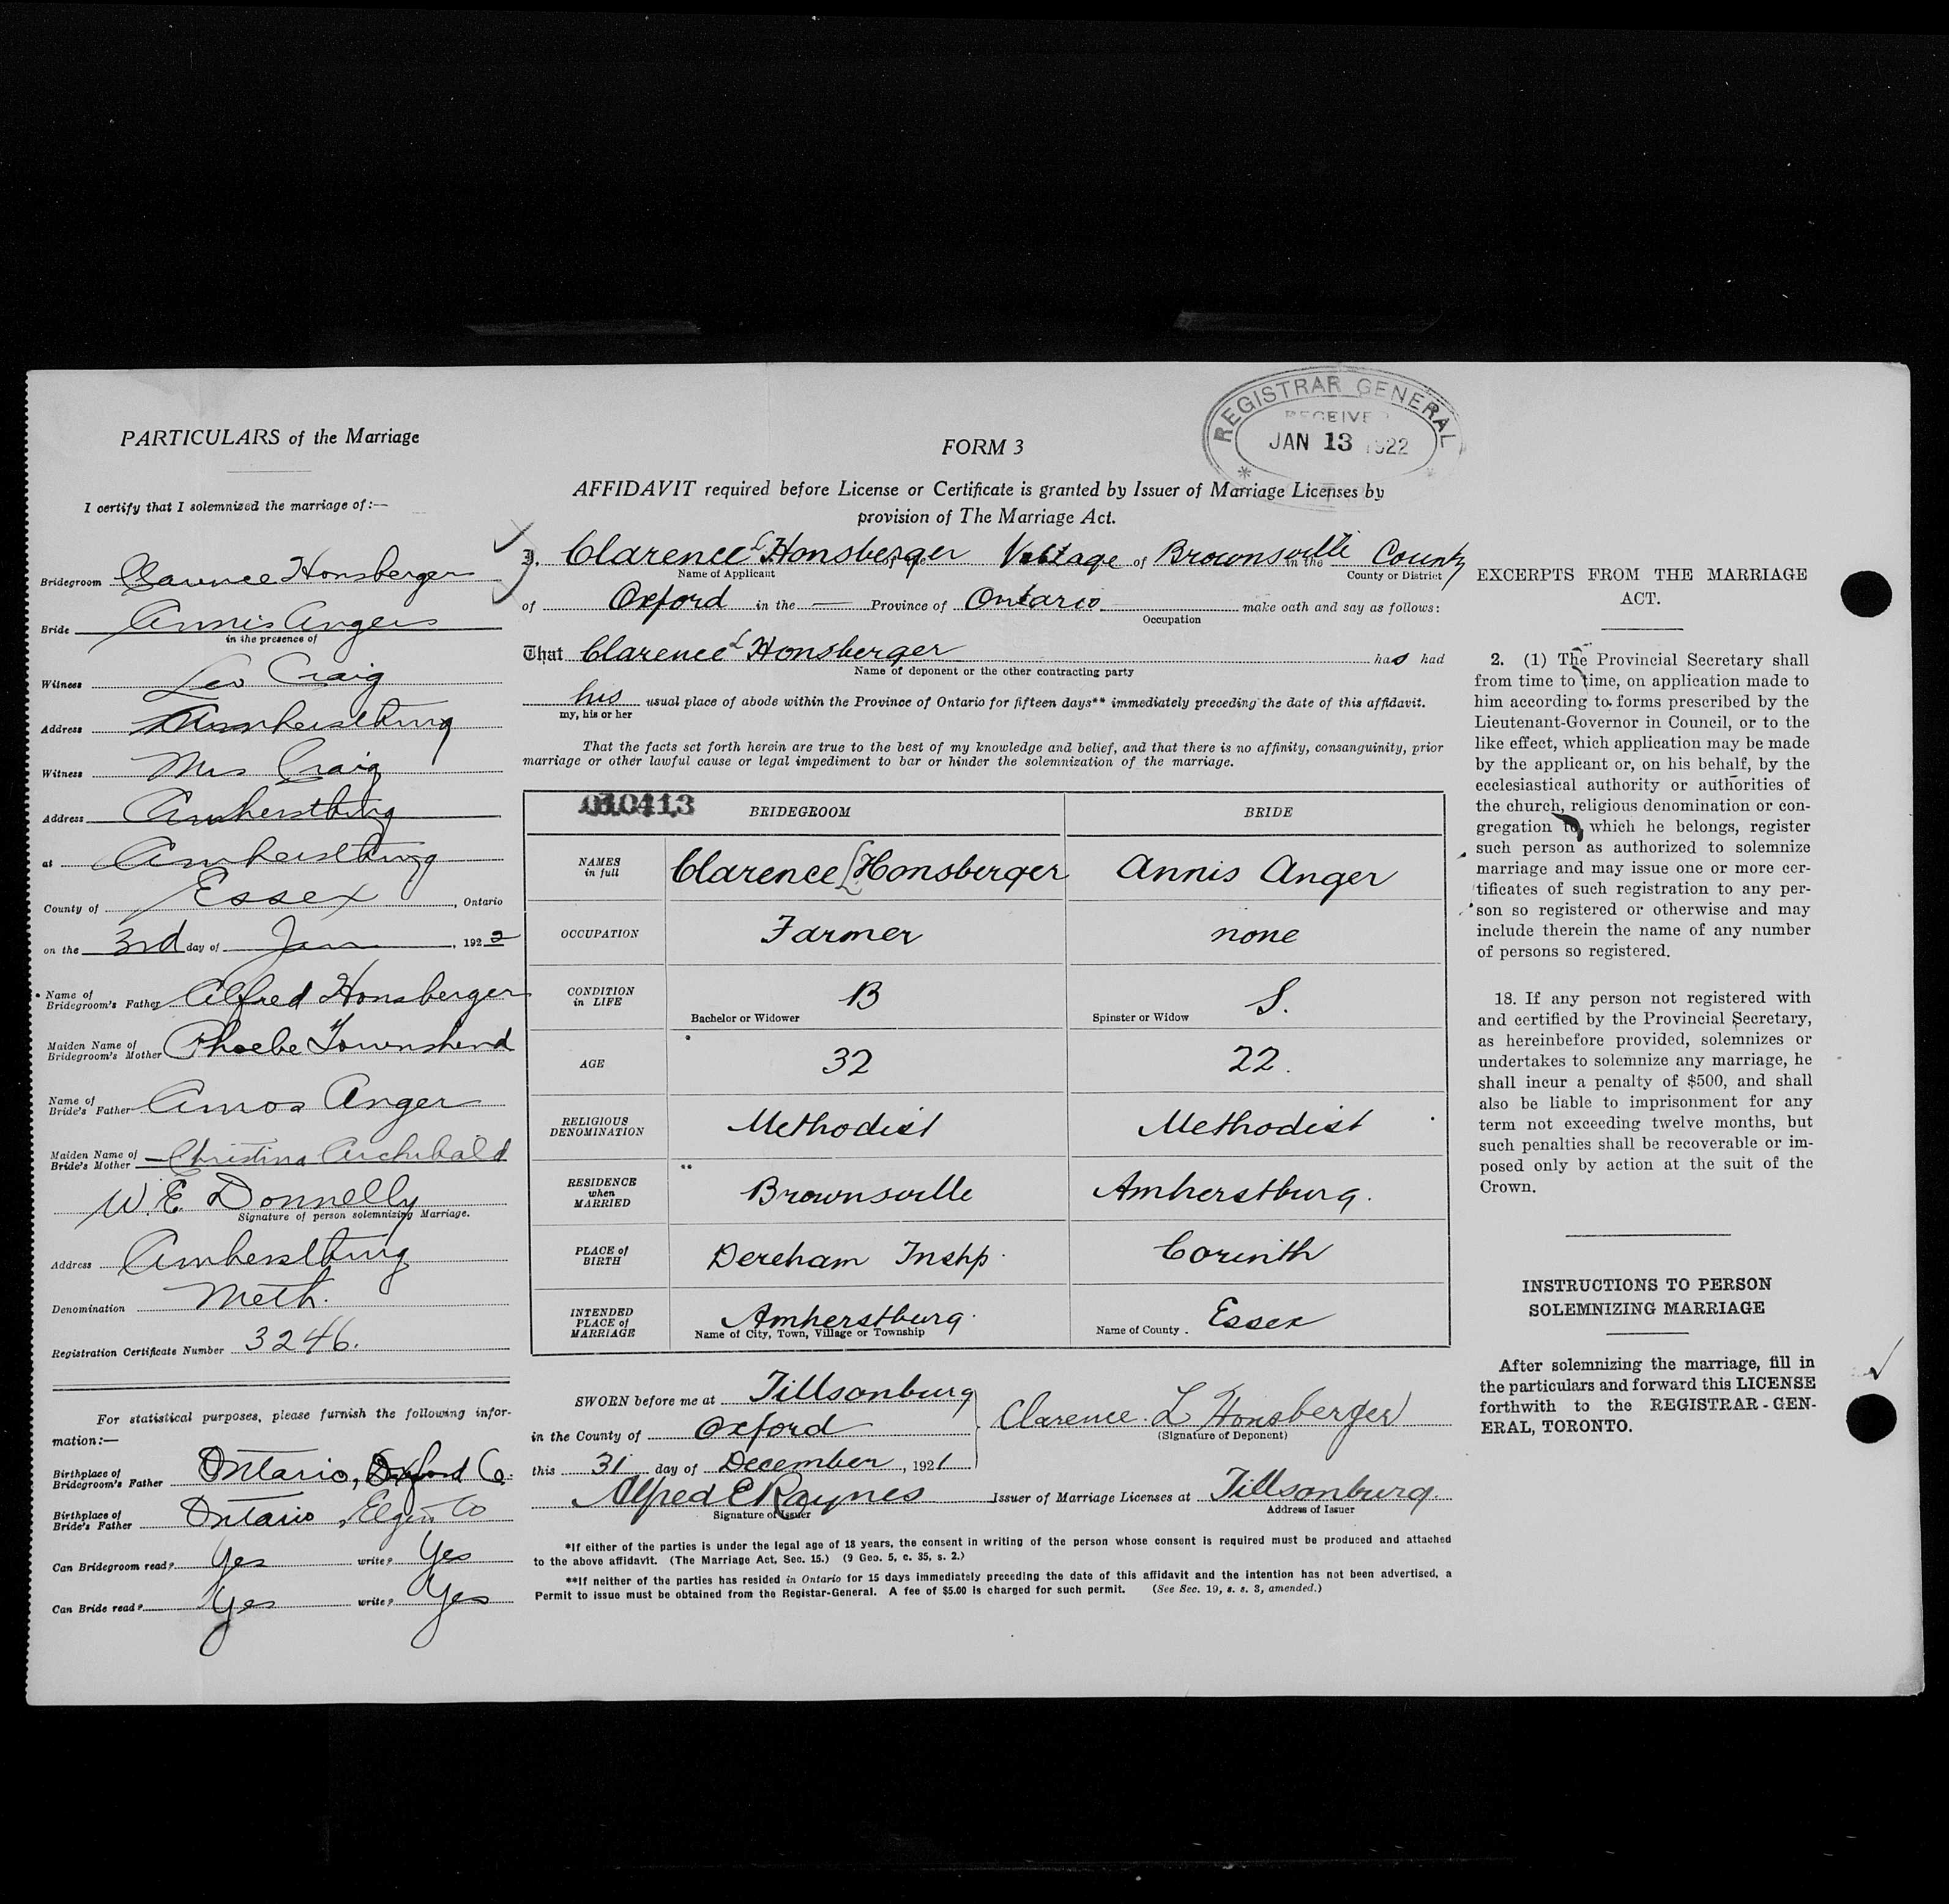 REGISTRAR GENERAL
RECEIVED
JAN 13 1922
PARTICULARS of the Marriage
I certify that I solemnized the marriage of:—
Bridegroom Clarence Honsberger
Bride Annis Anger
in the presence of
Witness Leo Craig
Address Amherstburg
Witness Mrs Craig
Address Amherstburg
at Amherstburg
County of Essex, Ontario
on the 3rd day of Jan, 1922
Name of Bridegroom's Father Alfred Honsberger
Maiden Name of Bridegroom's Mother Phoebe Townshend
Name of Bride's Father Amos Anger
Maiden Name of Bride's Mother Christina Archibald
W. E. Donnelly
Signature of person solemnizing Marriage.
Address Amherstburg
Denomination Meth.
Registration Certificate Number 3246.
For statistical purposes, please furnish the following infor-
mation:—
Birthplace of Bridegroom's Father Ontario, Oxford Co.
Birthplace of Bride's Father Ontario, Elgin Co
Can Bridegroom read? Yes write? Yes
Can Bride read? Yes write? Yes
FORM 3
AFFIDAVIT required before License or Certificate is granted by Issuer of Marriage Licenses by
provision of The Marriage Act.
I, Clarence L Honsberger Village of Brownsville in the County
Name of Applicant County or District
of Oxford in the — Province of Ontario make oath and say as follows:
Occupation
That Clarence L Honsberger has had
Name of deponent or the other contracting party
his usual place of abode within the Province of Ontario for fifteen days** immediately preceding the date of this affidavit.
my, his or her
That the facts set forth herein are true to the best of my knowledge and belief, and that there is no affinity, consanguinity, prior
marriage or other lawful cause or legal impediment to bar or hinder the solemnization of the marriage.
010413 BRIDEGROOM BRIDE
NAMES in full Clarence L Honsberger Annis Anger
OCCUPATION Farmer none
CONDITION in LIFE B S.
Bachelor or Widower Spinster or Widow
AGE 32 22.
RELIGIOUS DENOMINATION Methodist Methodist
RESIDENCE when MARRIED Brownsville Amherstburg.
PLACE of BIRTH Dereham Tnshp. Corinth
INTENDED PLACE of MARRIAGE Amherstburg. Essex
Name of City, Town, Village or Township Name of County.
SWORN before me at Tillsonburg
in the County of Oxford
this 31 day of December, 1921
Clarence. L Honsberger
(Signature of Deponent)
Alfred E Raynes Issuer of Marriage Licenses at Tillsonburg.
Signature of Issuer Address of Issuer
*If either of the parties is under the legal age of 18 years, the consent in writing of the person whose consent is required must be produced and attached
to the above affidavit. (The Marriage Act, Sec. 15.) (9 Geo. 5, c. 35, s. 2.)
**If neither of the parties has resided in Ontario for 15 days immediately preceding the date of this affidavit and the intention has not been advertised, a
Permit to issue must be obtained from the Registar-General. A fee of $5.00 is charged for such permit. (See Sec. 19, s. s. 3, amended.)
EXCERPTS FROM THE MARRIAGE
ACT.
2. (1) The Provincial Secretary shall
from time to time, on application made to
him according to forms prescribed by the
Lieutenant-Governor in Council, or to the
like effect, which application may be made
by the applicant or, on his behalf, by the
ecclesiastical authority or authorities of
the church, religious denomination or con-
gregation to which he belongs, register
such person as authorized to solemnize
marriage and may issue one or more cer-
tificates of such registration to any per-
son so registered or otherwise and may
include therein the name of any number
of persons so registered.
18. If any person not registered with
and certified by the Provincial Secretary,
as hereinbefore provided, solemnizes or
undertakes to solemnize any marriage, he
shall incur a penalty of $500, and shall
also be liable to imprisonment for any
term not exceeding twelve months, but
such penalties shall be recoverable or im-
posed only by action at the suit of the
Crown.
INSTRUCTIONS TO PERSON
SOLEMNIZING MARRIAGE
After solemnizing the marriage, fill in
the particulars and forward this LICENSE
forthwith to the REGISTRAR-GEN-
ERAL, TORONTO.